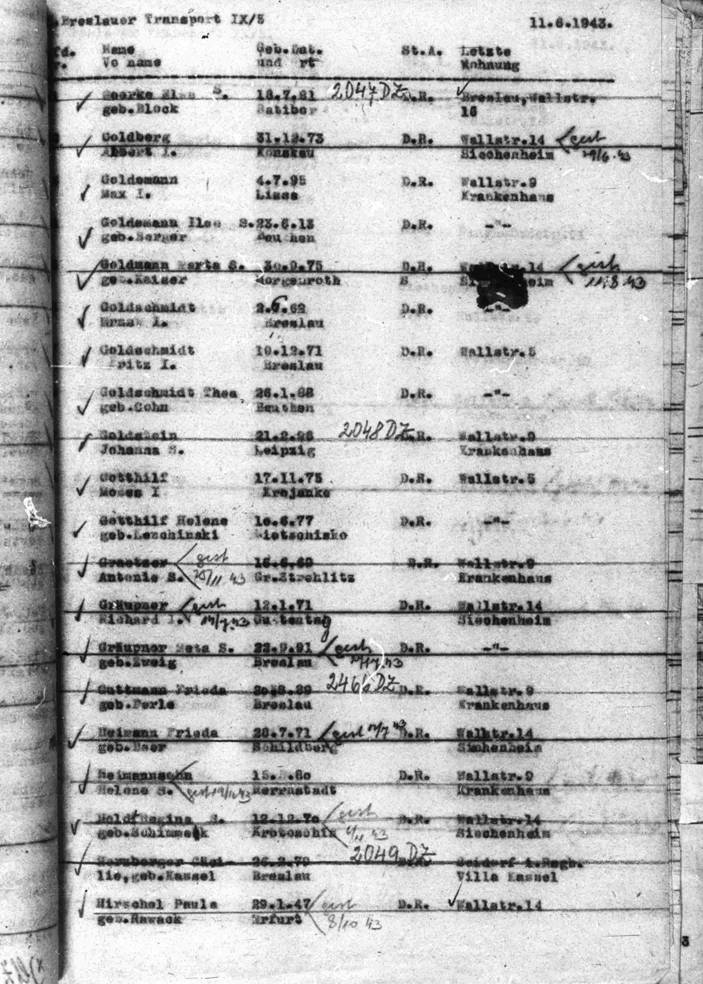 Breslauer Transport IX/5 11.6.1943.
Name Geb.Dat. St.A. Letzte
Vo name und rt Wohnung
Goerke Else S. 18.7.81 2047 DZ D.R. Breslau,Wallstr.
geb.Block Ratibor 16
Goldberg 31.12.73 D.R. Wallstr.14 gest
Albert I. Konskau Siechenheim 29/6 43
Goldemann 4.7.95 D.R. Wallstr.9
Max I. Lissa Krankenhaus
Goldemann Ilse S. 23.6.13 D.R. -"-
geb.Berger Beuthen
Goldmann Marta S. 30.9.75 D.R. Wallstr.14 gest
geb.Kaiser Morgenroth Siechenheim 11.8 43
Goldschmidt 2.6.62 D.R. -"-
Ernst I. Breslau
Goldschmidt 10.12.71 D.R. Wallstr.5
Fritz I. Breslau
Goldschmidt Thea 26.1.88 D.R. -"-
geb.Cohn Beuthen
Goldstein 21.2.96 2048 DZ D.R. Wallstr.9
Johanna S. Leipzig Krankenhaus
Gotthilf 17.11.75 D.R. Wallstr.5
Moses I Krojanke
Gotthilf Helene 10.6.77 D.R. -"-
geb.Leschinski
Graetzer gest D.R. Wallstr.9
Antonie S. 43 Gr.Strehlitz Krankenhaus
Gräupner gest 12.1.71 D.R. Wallstr.14
Richard I. 43 Guttentag Siechenheim
Gräupner Meta S. 22.9.81 gest D.R. -"-
geb.Zweig Breslau 43
Guttmann Frieda 2466 DZ D.R. Wallstr.9
geb.Perle Breslau Krankenhaus
Heimann Frieda 28.7.71 gest 43 D.R. Wallstr.14
geb.Baer Schildberg Siechenheim
Heimannsohn D.R. Wallstr.9
Helene S. gest 43 Herrnstadt Krankenhaus
Regina S. 12.12.70 gest D.R. Wallstr.14
Krotoschin 43 Siechenheim
Hernberger Cäci- 26.2.79 2049 DZ Seidorf i.Rsgb.
lie,geb.Kassel Breslau Villa Kassel
Hirschel Paula 29.1.47 gest D.R. Wallstr.14
geb.Hawack Erfurt 8/10 43
3